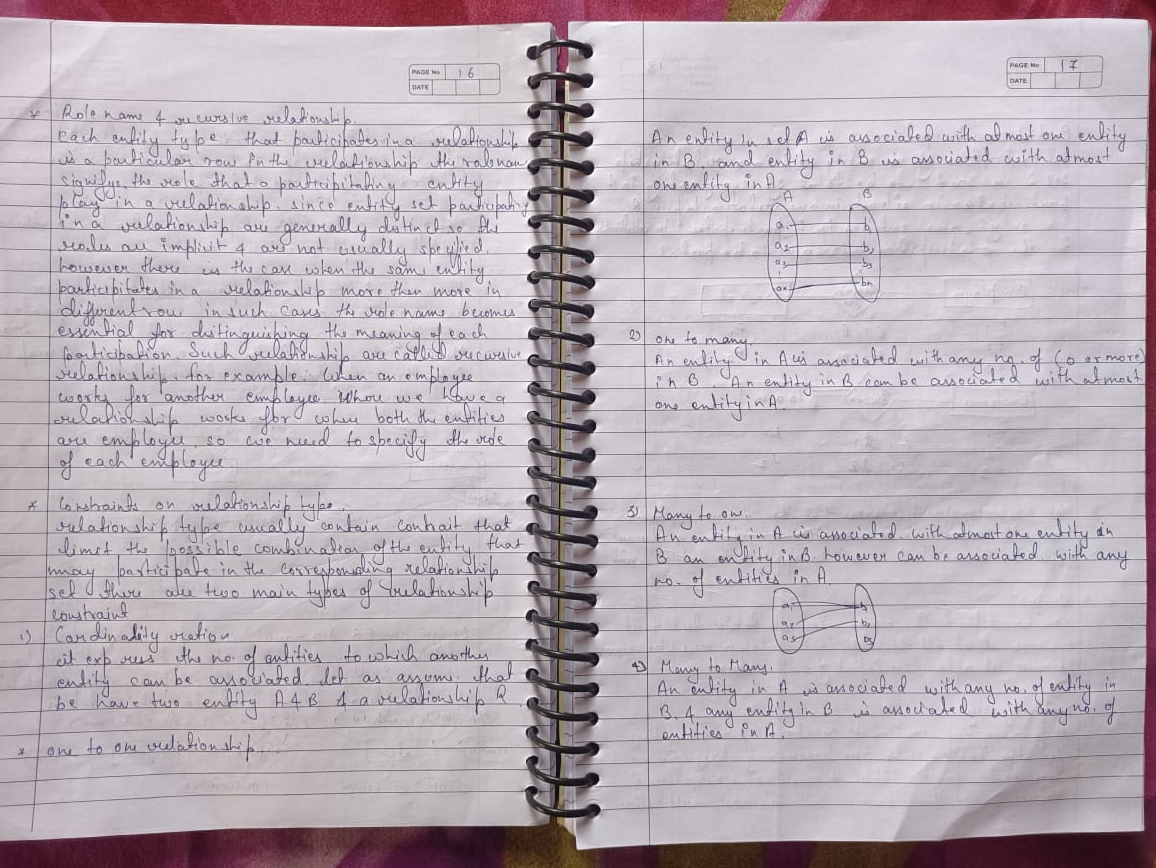 PAGE No 16
DATE
* Role name & recursive relationship.
Each entity type that participates in a relationship
is a particular row in the relationship the
signifys the role that a participitating entity
play in a relationship. since entity set participating
in a relationship are generally distinct so the
roales are implicit & are not usually specified.
however there is the case when the same entity
participitates in a relationship more than more in
different row in such cases the role name becomes
essential for distinguishing the meaning of each
participation. Such relationship are called recursive
relationship. for example: When an employee
works for another employee we have a
relationship works for when both the entities
are employee, so we need to specify the role
of each employee
* Constraints on relationship type.
relationship type usually contain contrait that
limit the possible combination of the entity that
may participate in the corresponding relationship
set there are two main types of relationship
constraint
1) Cardinality ration
it express the no. of entities to which another
entity can be associated let as assum that
be have two entity A & B & a relationship R
* one to one relationship.
PAGE No 17
DATE
An entity in set A is associated with atmost one entity
in B and entity in B is associated with atmost
one entity in A.
A B
a1 b1
a2 b2
a3 b3
an bn
2) one to many.
An entity in A is associated with any no. of (0 or more)
in B. An entity in B can be associated with atmost
one entity in A.
3) Many to one.
An entity in A is associated with atmost one entity in
B an entity in B however can be associated with any
no. of entities in A.
a1 b1
a2 b2
a3 b3
4) Many to Many.
An entity in A is associated with any no. of entity in
B. & any entity in B is associated with any no. of
entities in A.